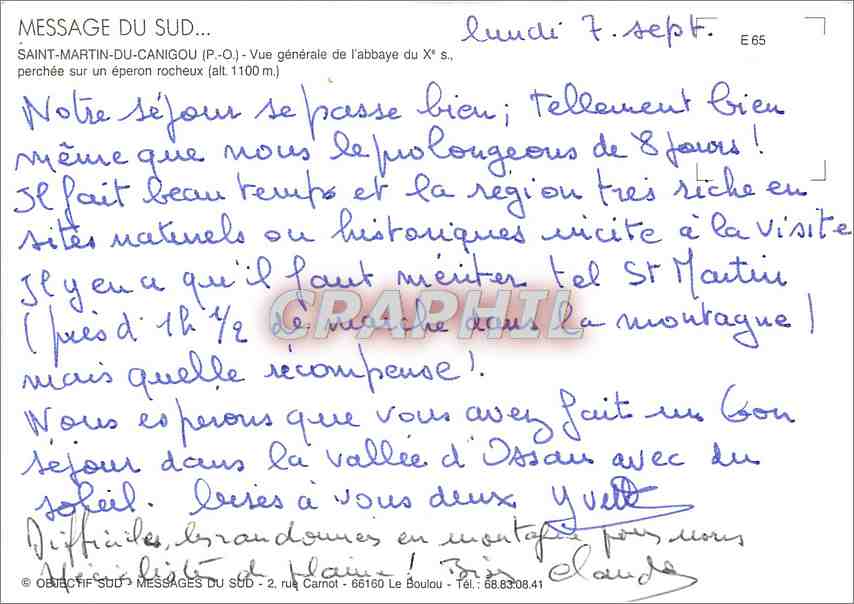 MESSAGE DU SUD...
lundi 7. sept.
E 65
SAINT-MARTIN-DU-CANIGOU (P.-O.) - Vue générale de l'abbaye du Xe s.,
perchée sur un éperon rocheux (alt. 1100 m.)
Notre séjour se passe bien ; tellement bien
même que nous le prolongeons de 8 jours !
Il fait beau temps et la région très riche en
sites naturels ou historiques incite à la visite
Il y en a qu'il faut mériter tel St Martin
GRAPHIL
(près d'1h 1/2 de marche dans la montagne)
mais quelle récompense !.
Nous esperons que vous avez fait un bon
séjour dans la vallée d'Ossau avec du
soleil. bises à vous deux Yvette
Difficiles, les randonnées en montagne pour nous
spécialistes de plaine ! Bises Claude
© OBJECTIF SUD - MESSAGES DU SUD - 2, rue Carnot - 66160 Le Boulou - Tél. : 68.83.08.41